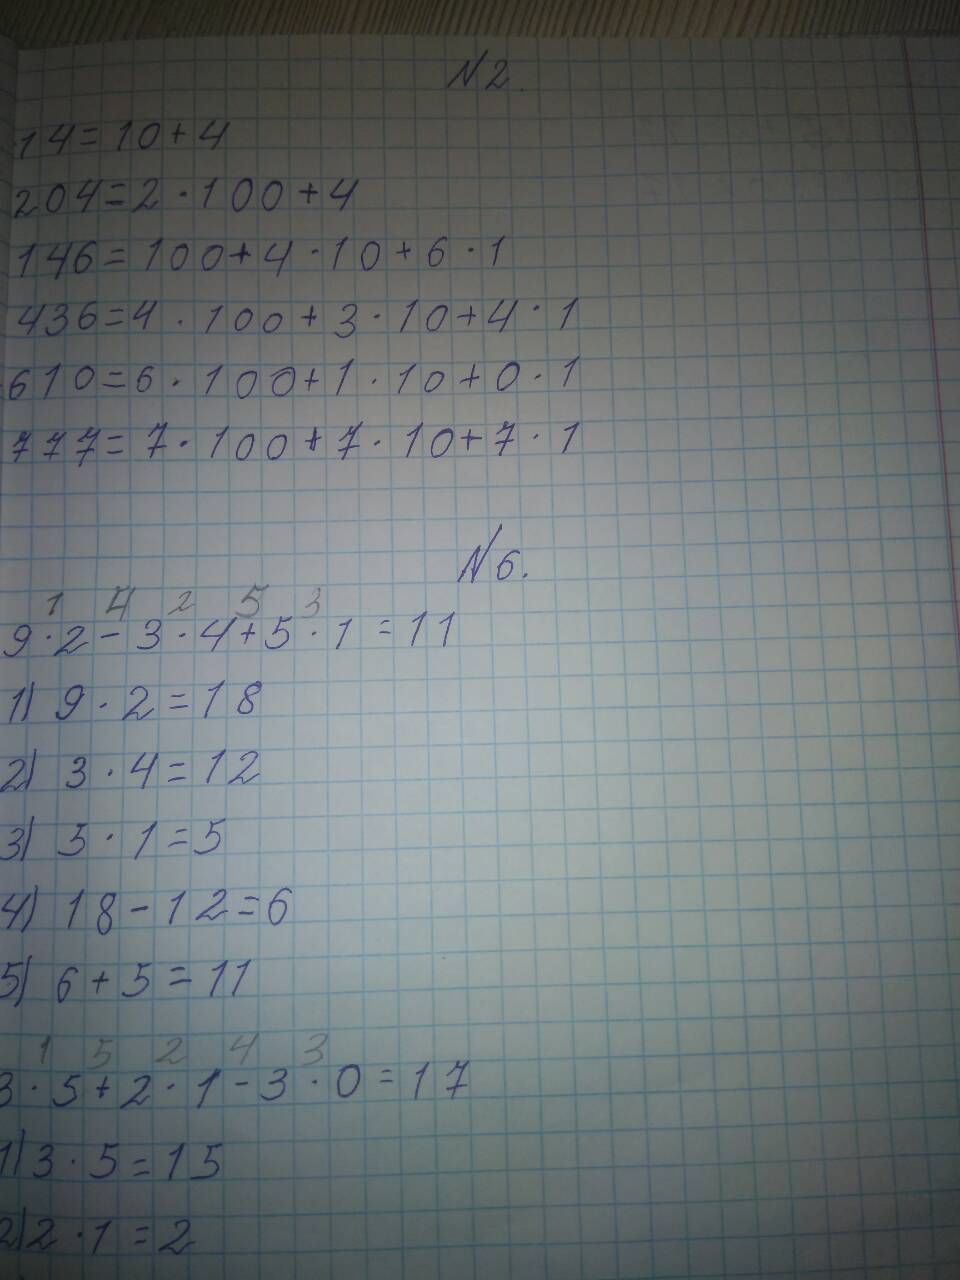 N 2.
14=10+4
204=2·100+4
146=100+4·10+6·1
436=4·100+3·10+4·1
610=6·100+1·10+0·1
777=7·100+7·10+7·1
N 6.
1 4 2 5 3
9·2-3·4+5·1=11
1) 9·2=18
2) 3·4=12
3) 5·1=5
4) 18-12=6
5) 6+5=11
1 5 2 4 3
3·5+2·1-3·0=17
1) 3·5=15
2) 2·1=2